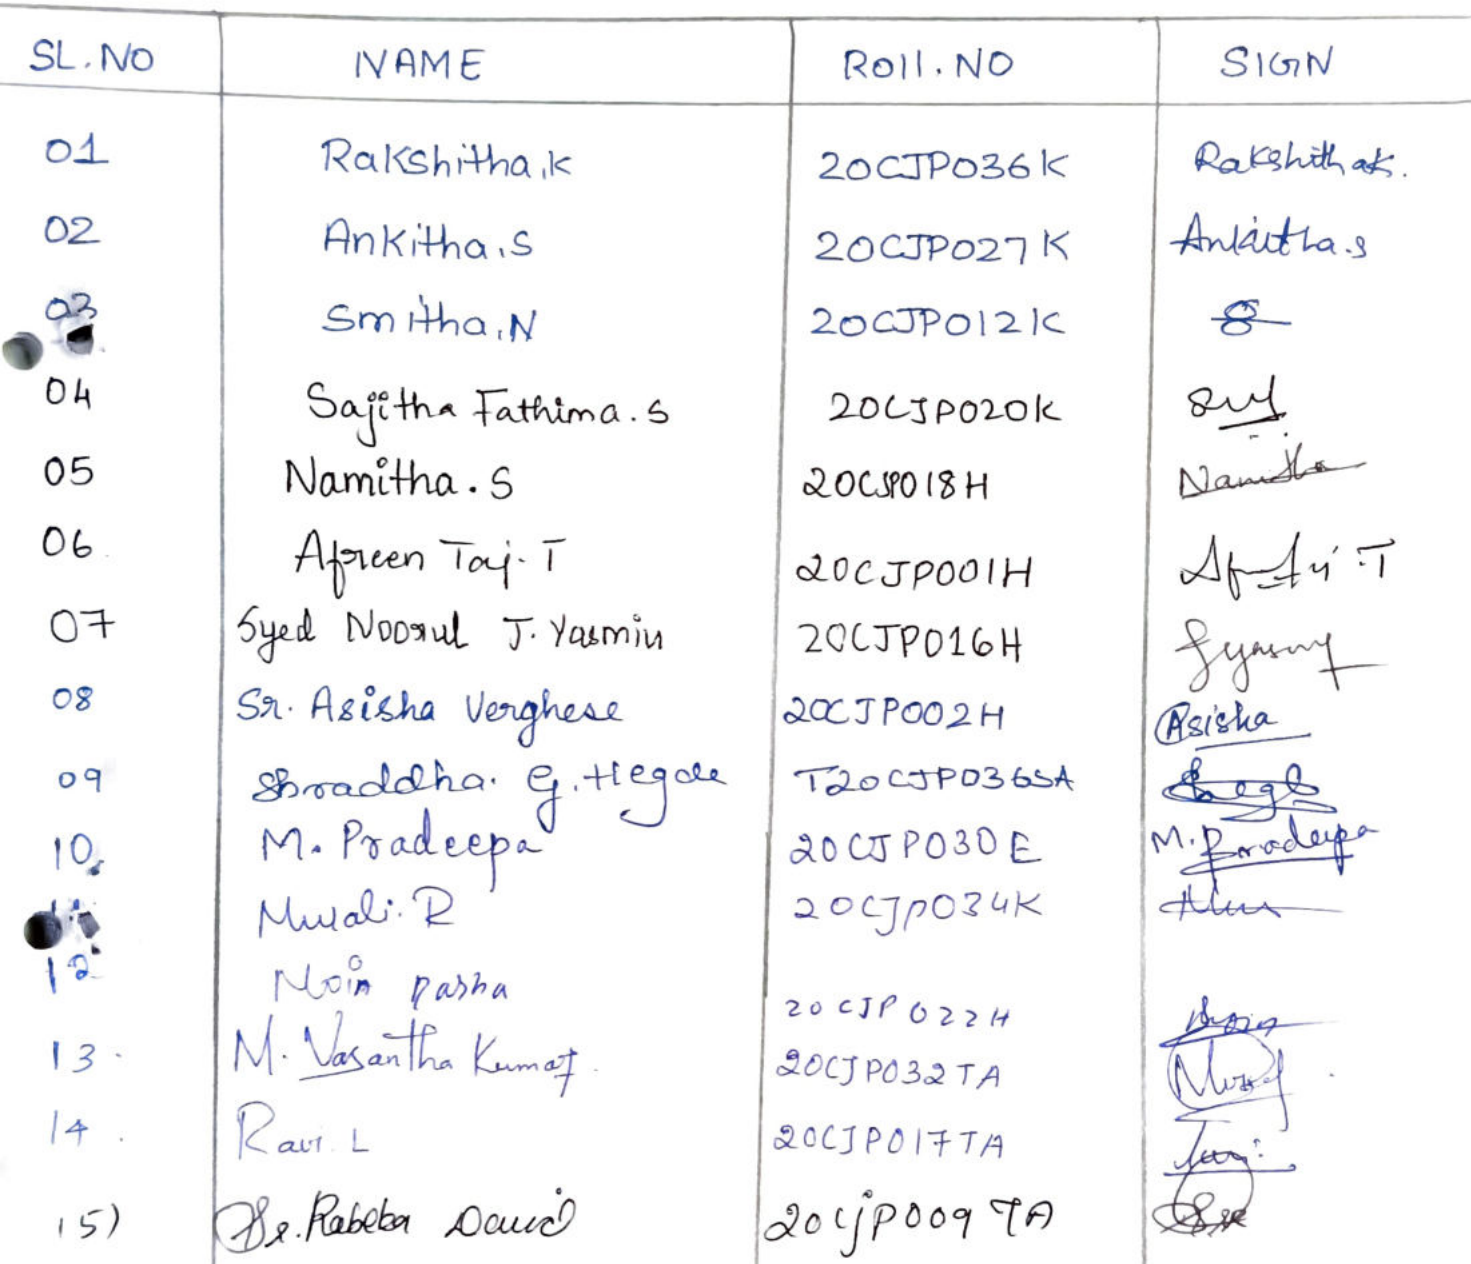 SL.NO NAME ROll.NO SIGN
01 Rakshitha.k 20CJP036K Rakshithak.
02 Ankitha.S 20CJP027K Ankitha.s
03 Smitha.N 20CJP012K
04 Sajitha Fathima.S 20CJP020K
05 Namitha.S 20CJP018H Namitha
06 Afreen Taj.T 20CJP001H
07 Syed Noorul J.Yasmin 20CJP016H
08 Sr. Asisha Verghese 20CJP002H Asisha
09 Shraddha. G.Hegde T20CJP036SA
10. M. Pradeepa 20CJP030E M.Pradeepa
11 Murali.R 20CJP034K
12 Moin pasha 20CJP022H
13. M. Vasantha Kumar. 20CJP032TA
14. Ravi.L 20CJP017TA
15) Sr.Rabeka David 20CjP009TA